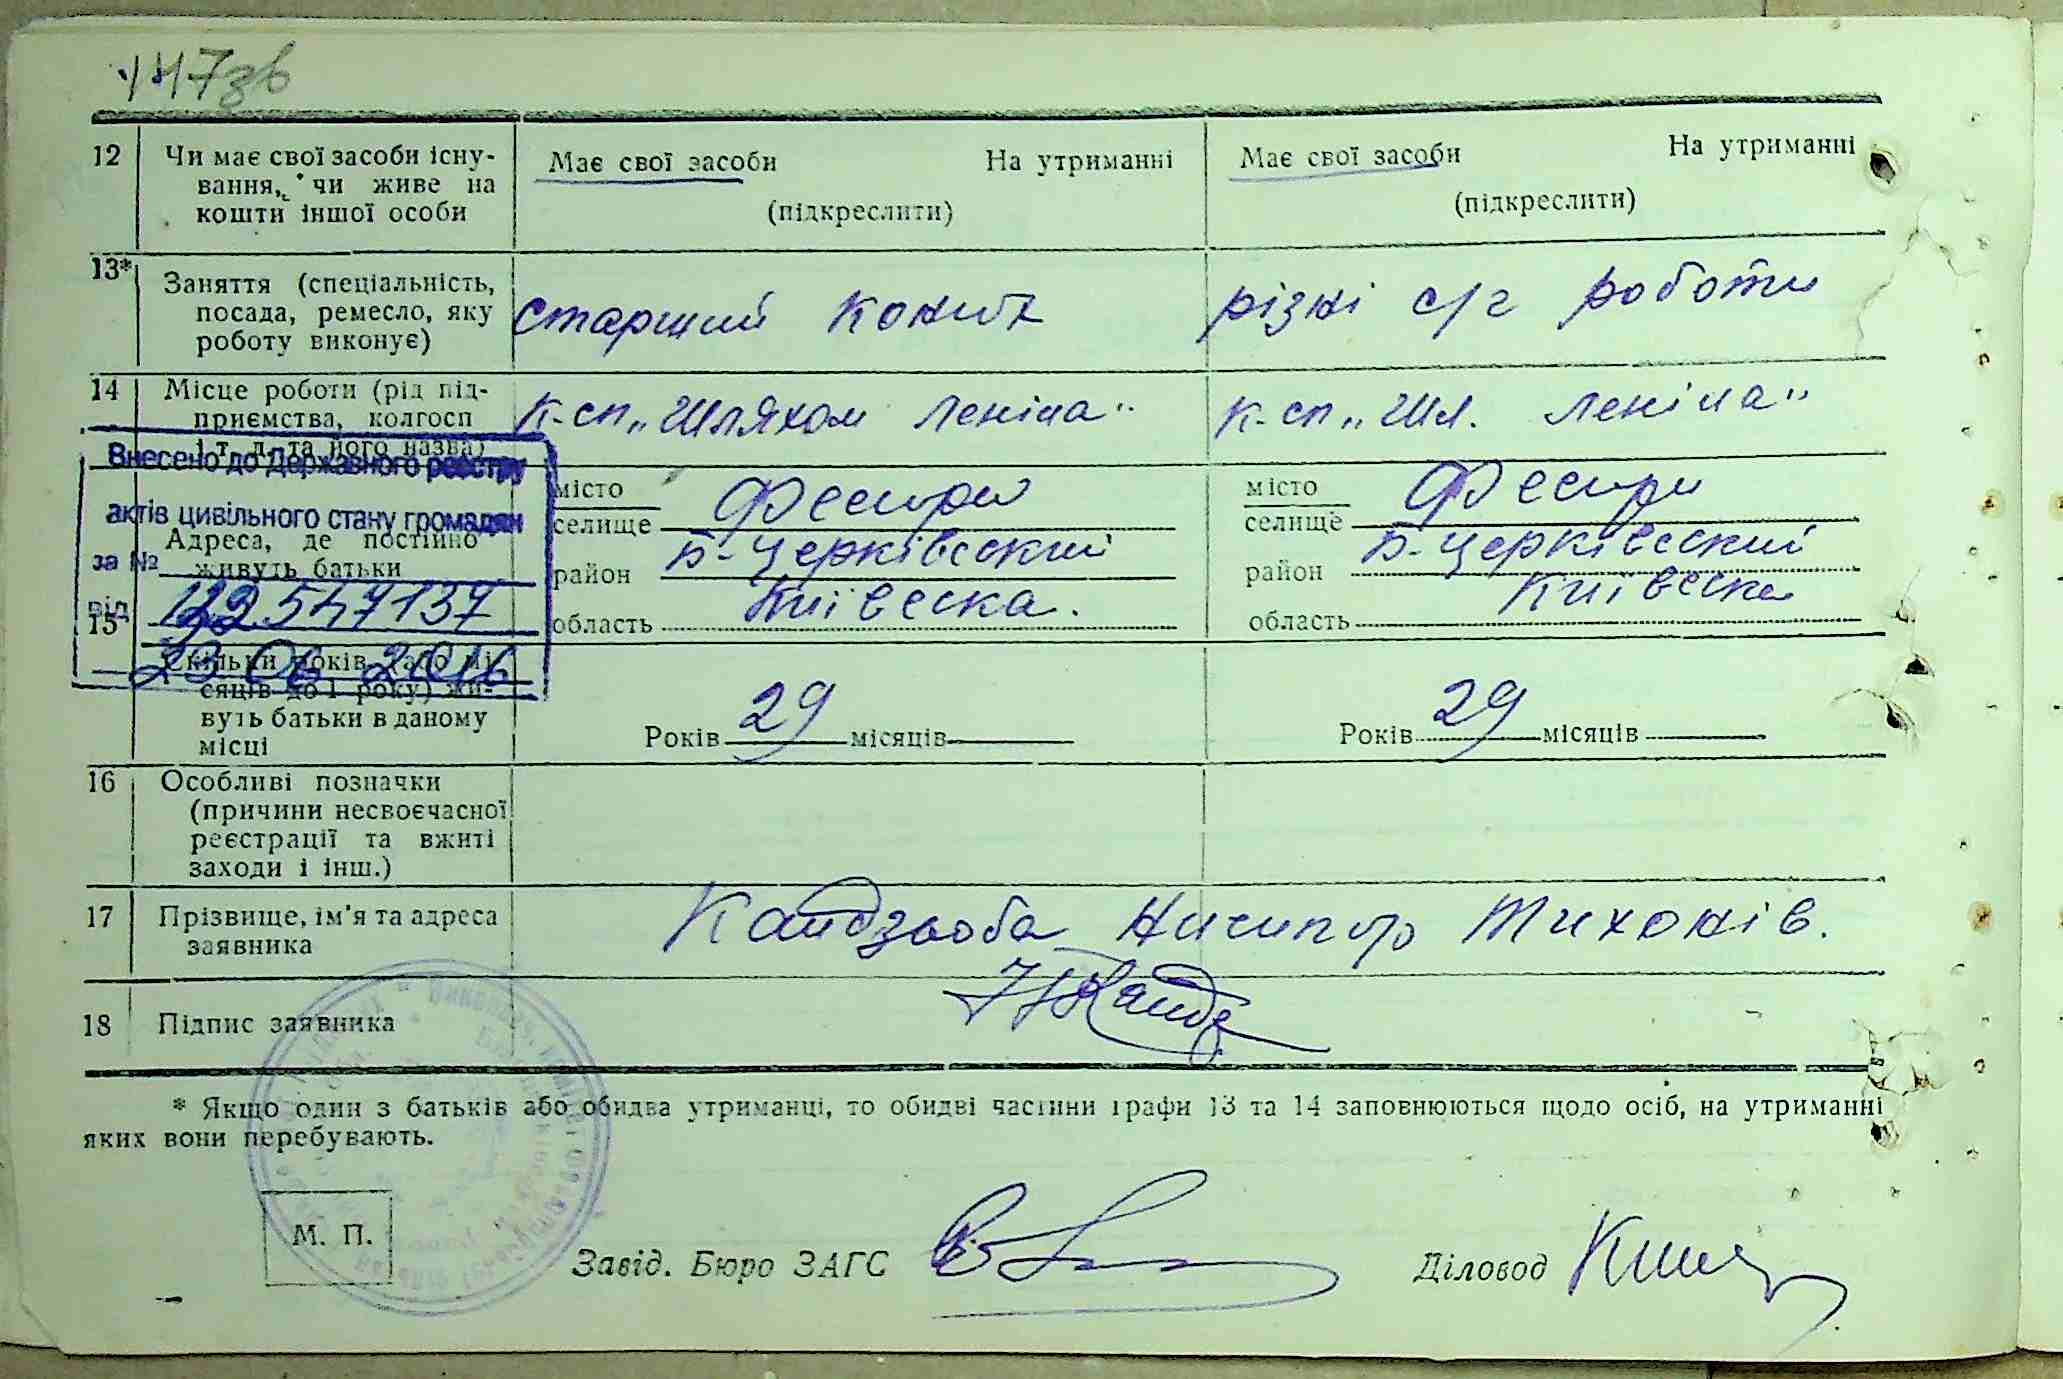 147зв
12 Чи має свої засоби існу-
вання, чи живе на
кошти іншої особи
Має свої засоби На утриманні
(підкреслити)
Має свої засоби На утриманні
(підкреслити)
13* Заняття (спеціальність,
посада, ремесло, яку
роботу виконує)
старший конюх
різні с/г роботи
14 Місце роботи (рід під-
приємства, колгосп
і т. д. та його назва)
к-сп „Шляхом Леніна"
к-сп „Шл. Леніна"
Внесено до Державного реєстру
актів цивільного стану громадян
за №
від
23 06 2016
15
Адреса, де постійно
живуть батьки
місто
селище Фесюри
район Б-Церківський
область Київська.
місто
селище Фесюри
район Б-Церківський
область Київська
Скільки років (або мі-
сяців до 1 року) жи-
вуть батьки в даному
місці
Років 29 місяців
Років 29 місяців
16 Особливі позначки
(причини несвоєчасної
реєстрації та вжиті
заходи і інш.)
17 Прізвище, ім'я та адреса
заявника
Кандзюба Ничипор Тихонів.
18 Підпис заявника
* Якщо один з батьків або обидва утриманці, то обидві частини графи 13 та 14 заповнюються щодо осіб, на утриманні
яких вони перебувають.
М. П.
Завід. Бюро ЗАГС
Діловод